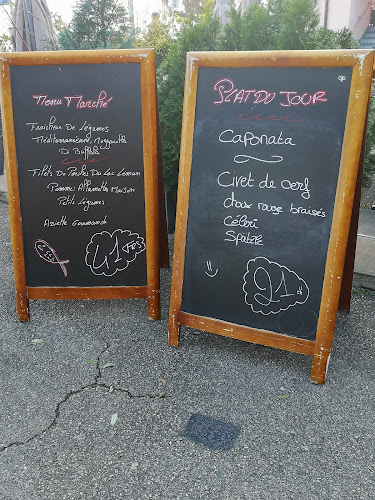 Menu Marché
Fraîcheur De Légumes
Méditerranéenne, Mozzarella
Di Buffala
Filets De Perches Du Lac Léman
Pommes Allumettes Maison
Petits Légumes
Assiette Gourmande
41 Frs
PLAT DU JOUR
Caponata
Civet de cerf
choux rouge braisés
Céleri
Spätzle
21.-